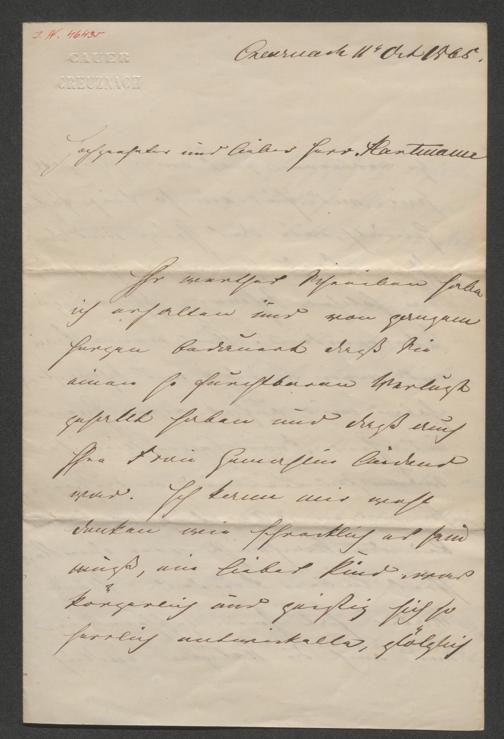 I. N. 46435
CAUER
CREUZNACH
Creuznach 11t Oct 1865.
Hochgeehrter und lieber Herr Hartmann
Ihr werthes Schreiben habe
ich erhalten und von ganzem
Herzen bedauert daß Sie
einen so furchtbaren Verlust
gehabt haben und daß auch
Ihre Frau Gemahlin leidend
war. Ich kann mir wohl
denken wie schrecklich es sein
muß, ein liebes Kind, was
körperlich und geistig sich so
herrlich entwickelte, plötzlich